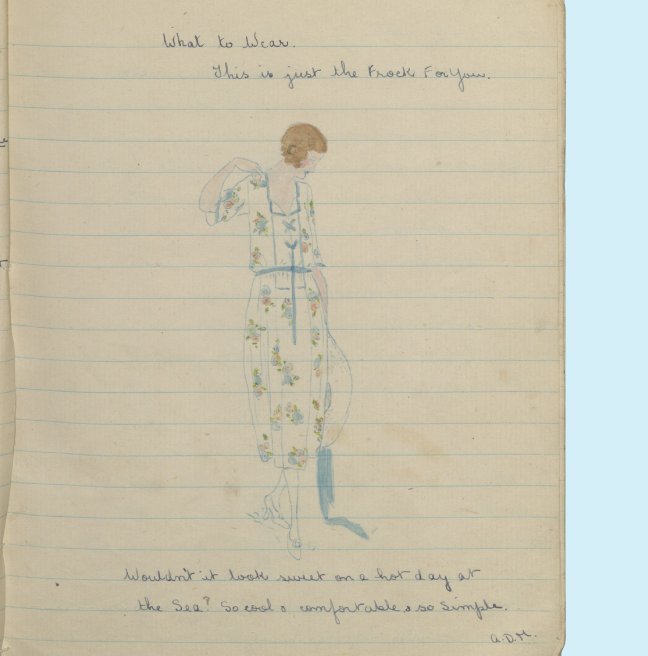 What to Wear.
This is just the Frock For You.
Wouldn't it look sweet on a hot day at
the Sea? So cool & comfortable & so simple.